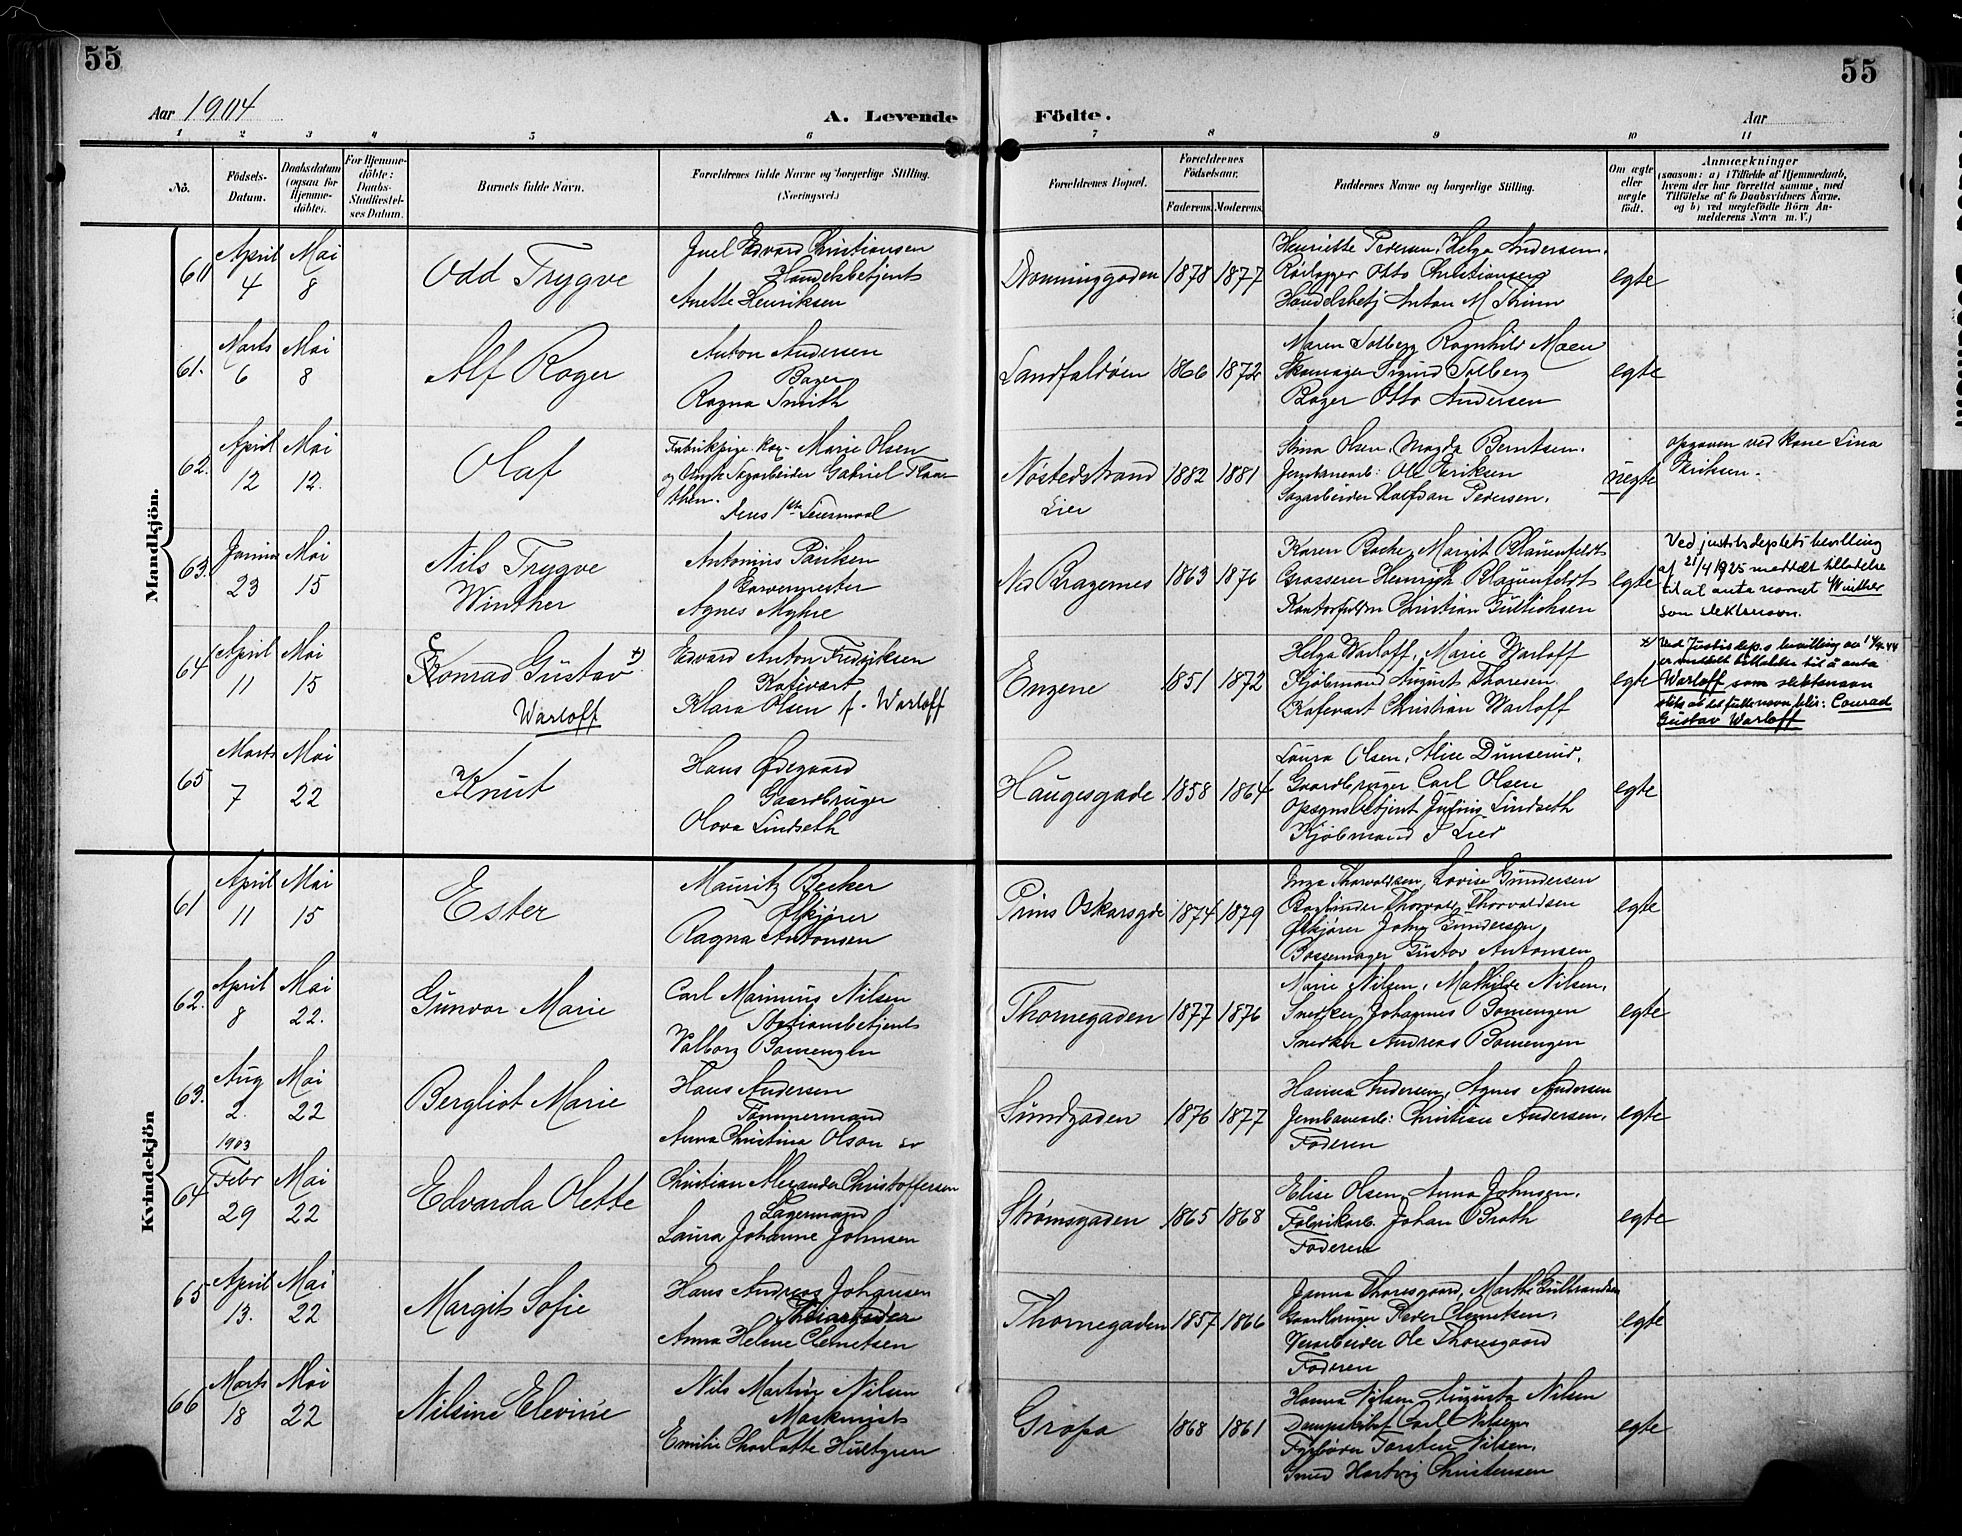 55
55
Aar 1904
A. Levende
Födte.
Aar
1 2 3 4 5 6 7 8 9 10 11
No.
Födsels-Datum.
Daabsdatum (ogsaa for Hjemme-döbte).
For Hjemme-döbte: Daabs-Stadfæstel-ses Datum.
Barnets fulde Navn.
Forældrenes fulde Navne og borgerlige Stilling. (Næringsvei.)
Forældrenes Bopæl.
Forældrenes Födselsaar.
Faderens. Moderens.
Faddernes Navne og borgerlige Stilling.
Om ægte eller uægte födt.
Anmærkninger
(saasom: a) i Tilfælde af Hjemmedaab, hvem der har forrettet samme, med Tilföielse af to Daabsvidners Navne, og b) ved uægtefödte Börn An-melderens Navn m. V.)
Mandkjön.
60 April 4 Mai 8
Odd Trygve
Juel Edvard Christiansen
Handelsbetjent
Anette Henriksen
Dronninggaden 1878 1877
Henriette Pedersen, Helga Andersen,
Rørlægger Otto Christiansen
Handelsbetj Anton M Thunn
egte
61. Marts 6 Mai 8
Alf Roger
Anton Andersen
Bager
Ragna Smith
Landfaldøen 1866 1872
Maren Solberg Ragnhild Moen
Skomager Sigurd Solberg
Bager Otto Andersen
egte
62. April 12 Mai 12.
Olaf
Fabrikpige Marie Olsen
og Ungk Sagarbeider Gabriel
deres 1ste Leiermaal
Nøstedstrand
Lier
1882 1881
Stina Olsen, Magda Berntsen.
Jernbanearb: Ole Eriksen
Sagarbeider Halfdan Pedersen.
uegte
opgaven ved Kone Lina
Eriksen.
63. Januar 23 Mai 15
Nils Trygve
Winther
Antonius Paulsen
Garvermester
Agnes Myhre
Nd Bragernes 1863 1876
Karen Bache, Margit Blauenfeldt
Grosserer Heinrich Blauenfeldt
Christian Gulliksen
egte
Ved justitsdeptets bevilling
af 21/4 1925 meddelt tilladelse
til at anta navnet Winther
som slektsnavn.
64 April 11 Mai 15
C
Konrad Gustav x)
Warloff
Edvard Anton Fredriksen
Kafévart
Klara Olsen f. Warloff
Engene 1851 1872
Helga Warloff, Marie Warloff
Kjøbmand August Thoresen
Kafevart Christian Warloff
egte
x) Ved Justisdep.s bevilling av
er meddelt tillatelse til å anta
Warloff som slektsnavn
slik at det fulle navn blir: Conrad
Gustav Warloff
65 Marts 7 Mai 22
Knut
Hans Ødegaard
Gaardbruger
Olava Lindseth
Haugesgade 1858 1864
Laura Olsen, Alise Dunserud,
Gaardbruger Carl Olsen
Opsynsbetjent Julius Lindseth
Kjøbmand T Lied
egte
Kvindekjön
61 April 11 Mai 15
Ester
Mauritz Becker
Ølkjører
Ragna Antonsen
Prins Oskarsgde 1874 1879
Inga Thorvaldsen, Lovise Gundersen
Thorvald Thorvaldsen
Ølkjører John Gundersen
Bøssemager Gustav Antonsen
egte
62. April 8 Mai 22.
Gunvor Marie
Carl Marinius Nilsen
Stationsbetjent
Valborg Bomengen
Thornegaden 1877 1876
Marie Nilsen, Mathilde Nilsen,
Snedker Johannes Bomengen
Snedker Andreas Bomengen
egte
63. Aug 2. 1903 Mai 22
Bergliot Marie
Hans Andersen
Tømmermand
Anna Christina Olson
Sundgaden 1876 1877
Hanna Andersen, Agnes Andersen
Jernbanearb: Christian Andersen,
Faderen
egte
64 Febr 29 Mai 22
Edvarda Olette
Christian Alexander Christoffersen
Lagermand
Laura Johanne Johnsen
Strømsgaden 1865 1868
Elise Olsen, Anna Johnsen,
Fabrikarb. Johan Brath
Faderen
egte
65 April 13. Mai 22
Margit Sofie
Hans Andreas Johansen
Anna Helene Clemetsen
Thornegaden 1857 1866
Janna Thorsgaard, Marthe Gulbrandsen
Gaardbruger Peder Clemetsen,
Ole Thoresgaard
Faderen
egte
66 Marts 18 Mai 22
Nilsine Elevine
Nils Martin Nilsen
Maskinist
Emilie Charlotte Hultgren
Grøfa 1868 1861
Hanna Nilsen, Augusta Nilsen
Carl Nilsen
Fyrbøder Torsten Nilsen,
Smed Hartvig Christensen
egte